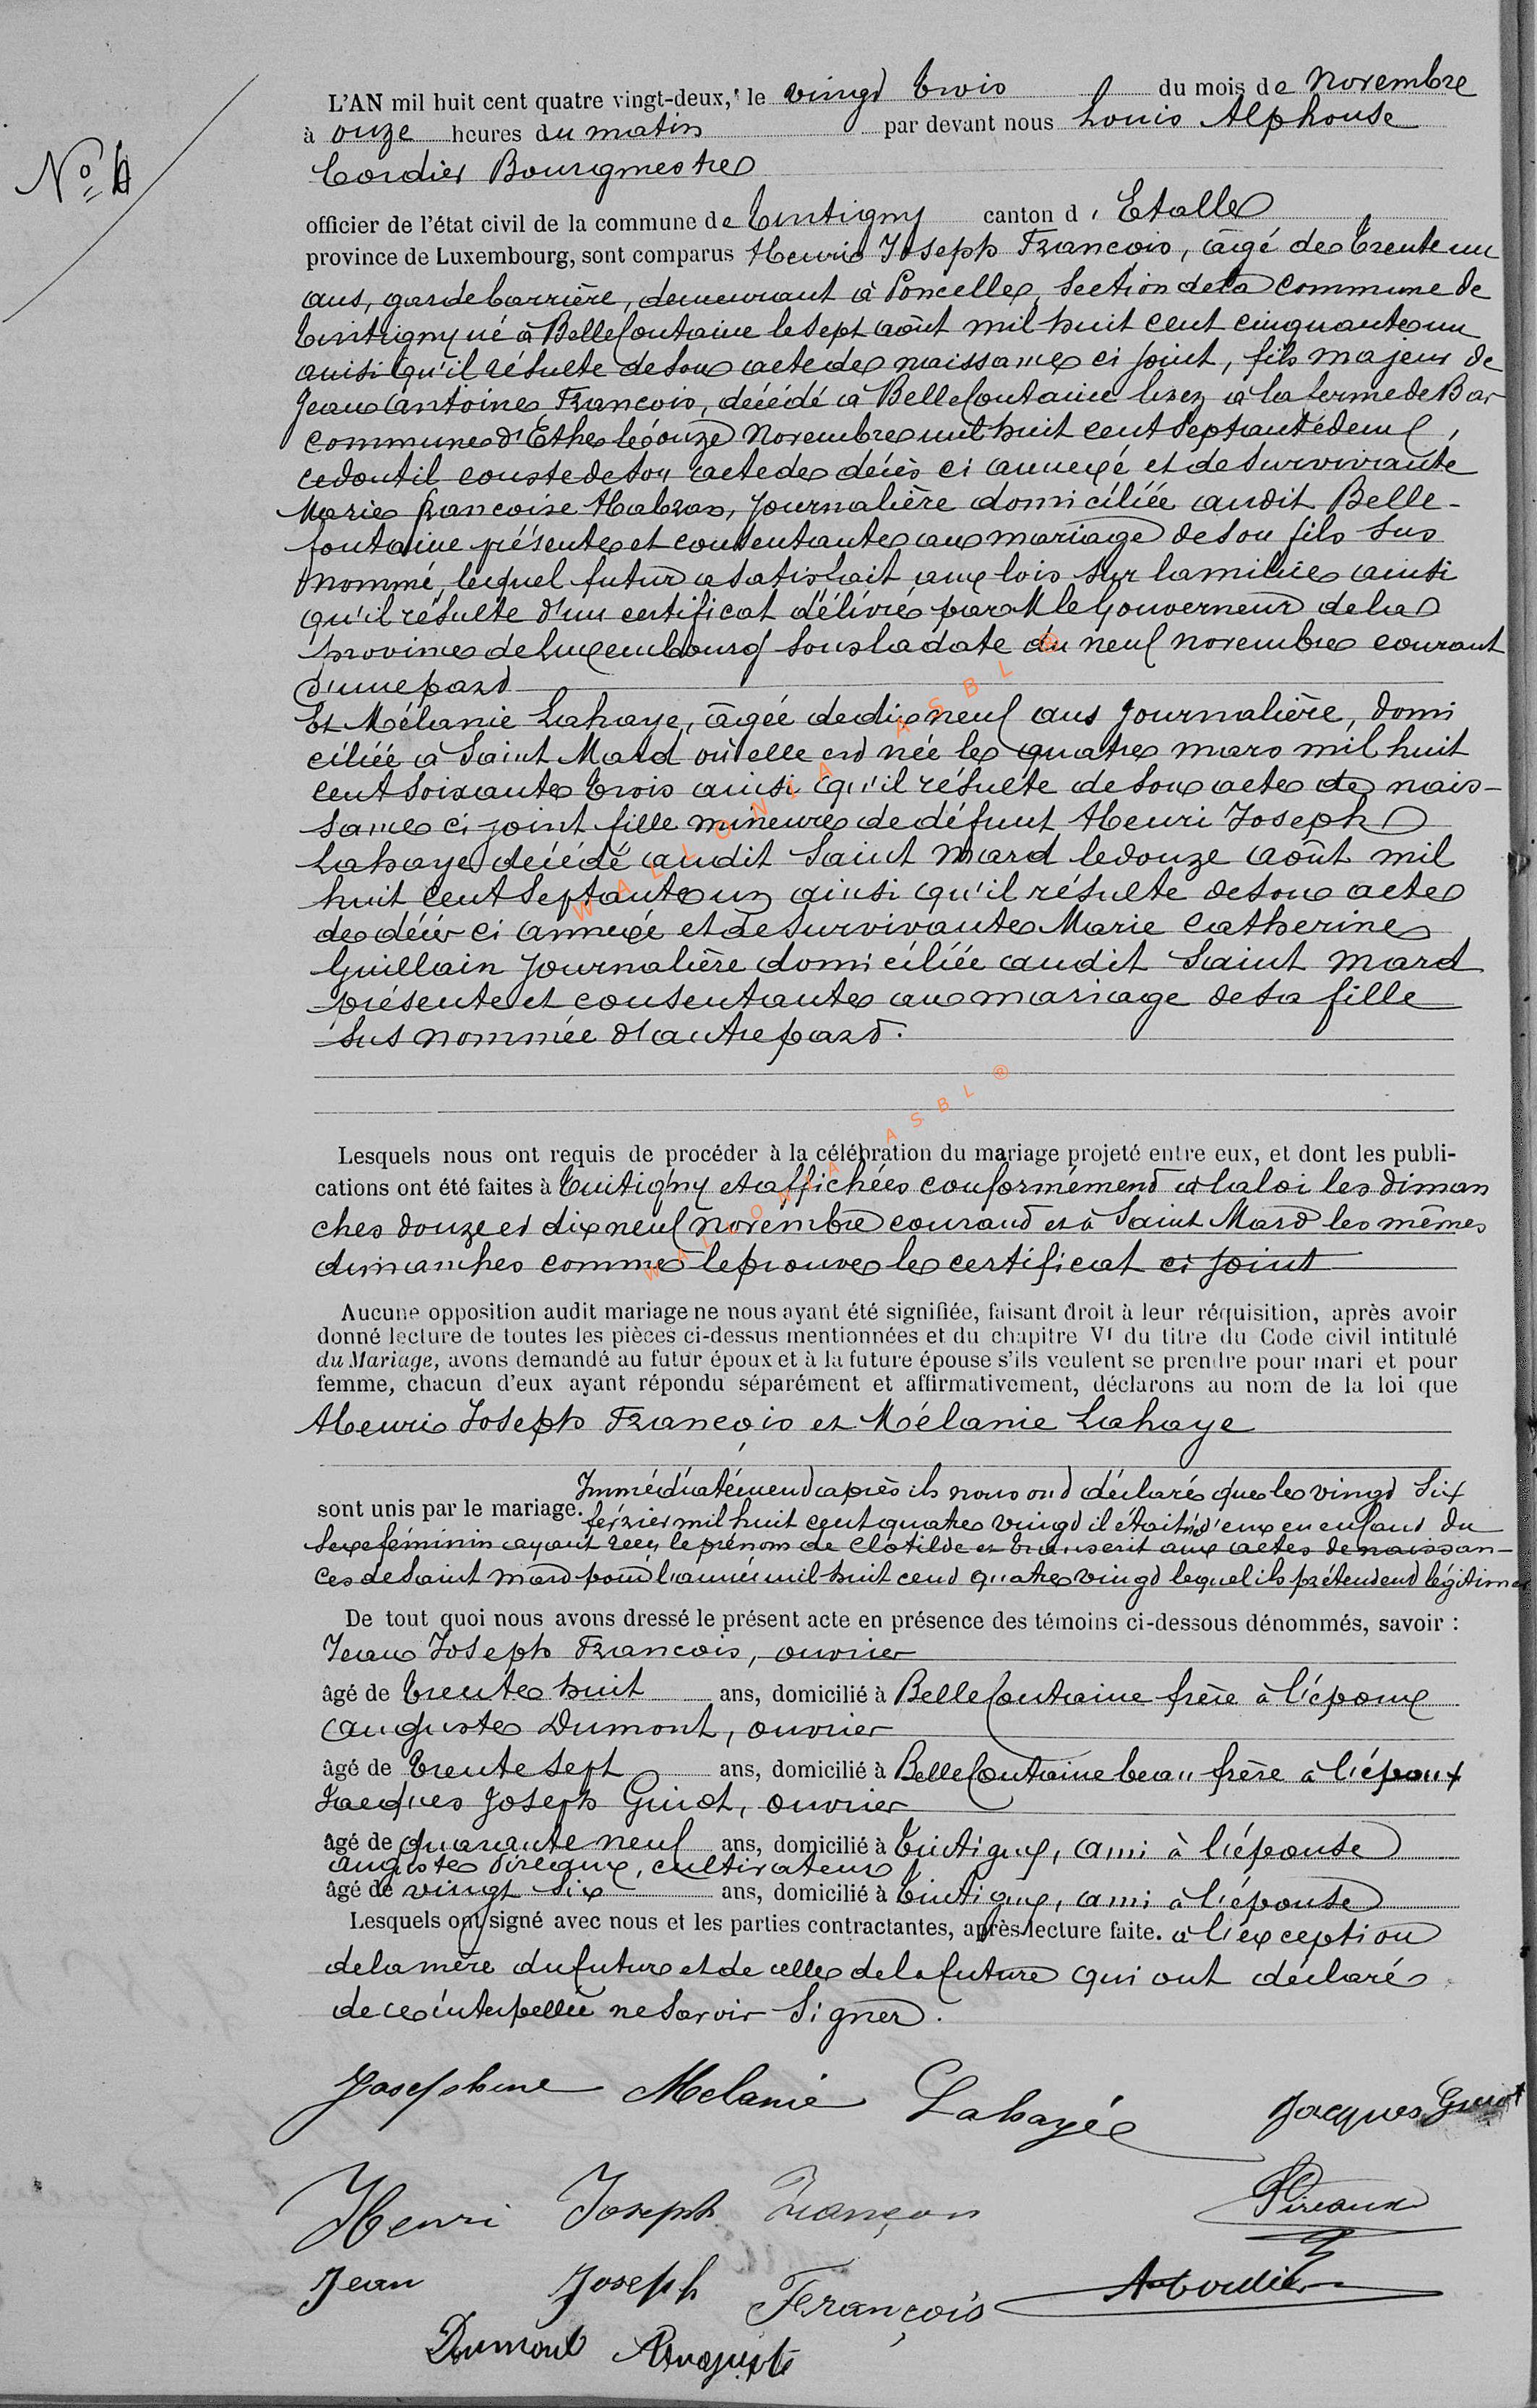 L'AN mil huit cent quatre vingt-deux, le vingt trois du mois de Novembre
à onze heures du matin par devant nous Louis Alphonse
Cordier Bourgmestre
N° 6
officier de l'état civil de la commune de Tintigny canton d'Etalle
province de Luxembourg, sont comparus Henri Joseph Francois, âgé de trente un
ans, garde barrière, demeurant à Poncelle, section de la commune de
Tintigny né à Bellefontaine le sept août mil huit cent cinquante un
ainsi qu'il résulte de son acte de naissance ci joint, fils majeur de
Jean Antoine Francois, décédé à Bellefontaine lisez à la ferme de Bar
commune d'Ethe le onze Novembre mil huit cent septante deux,
ce dont il conste de son acte de décès ci annexé et de survivante
Marie francoise Habran, journalière domiciliée audit Belle-
fontaine présente et consentante au mariage de son fils sus
nommé, lequel futur a satisfait aux lois sur la milice ainsi
qu'il résulte d'un certificat délivré par M le Gouverneur de la
province de Luxembourg sous la date du neuf novembre courant
d'une part
Et Mélanie Lahaye, âgée de dix neuf ans journalière, domi
ciliée à Saint Mard où elle est née le quatre mars mil huit
cent soixante trois ainsi qu'il résulte de son acte de nais-
sance ci joint fille mineure de défunt Henri Joseph
Lahaye décédé audit Saint Mard le douze août mil
huit cent septante un ainsi qu'il résulte de son acte
de décès ci annexé et de survivante Marie Catherine
Guillain journalière domiciliée audit Saint Mard
présente et consentante au mariage de sa fille
sus nommée d'autre part.
Lesquels nous ont requis de procéder à la célébration du mariage projeté entre eux, et dont les publi-
cations ont été faites à Tintigny et affichées conformément à la loi les diman
ches douze et dix neuf Novembre courant et à Saint Mard les mêmes
dimanches comme le prouve le certificat ci joint
Aucune opposition audit mariage ne nous ayant été signifiée, faisant droit à leur réquisition, après avoir
donné lecture de toutes les pièces ci-dessus mentionnées et du chapitre VI du titre du Code civil intitulé
du Mariage, avons demandé au futur époux et à la future épouse s'ils veulent se prendre pour mari et pour
femme, chacun d'eux ayant répondu séparément et affirmativement, déclarons au nom de la loi que
Henri Joseph François et Mélanie Lahaye
Immédiatement après ils nous ont déclaré que le vingt six
sont unis par le mariage. février mil huit cent quatre vingt il était né d'eux un enfant du
sexe féminin ayant reçu le prénom de Clotilde et transcrit aux actes de naissan-
ces de Saint Mard pour l'année mil huit cent quatre vingt lequel ils prétendent légitimer
De tout quoi nous avons dressé le présent acte en présence des témoins ci-dessous dénommés, savoir :
Jean Joseph Francois, ouvrier
âgé de trente huit ans, domicilié à Bellefontaine frère à l'époux
Auguste Dumont, ouvrier
âgé de trente sept ans, domicilié à Bellefontaine beau frère à l'époux
Jacques Joseph Guiot, ouvrier
âgé de quarante neuf ans, domicilié à Tintigny, ami à l'épouse
Auguste Pireaux, cultivateur
âgé de vingt six ans, domicilié à Tintigny, ami à l'épouse
Lesquels ont signé avec nous et les parties contractantes, après lecture faite. à l'exception
de la mère du futur et de celle de la future qui ont déclaré
de ce interpellée ne savoir signer.
Josephine Melanie Lahayée Jacques Guiot
Henri Joseph François Pireaux
Jean Joseph François A Cordier
Dumont Auguste
WALLONIA ASBL ®
WALLONIA ASBL ®